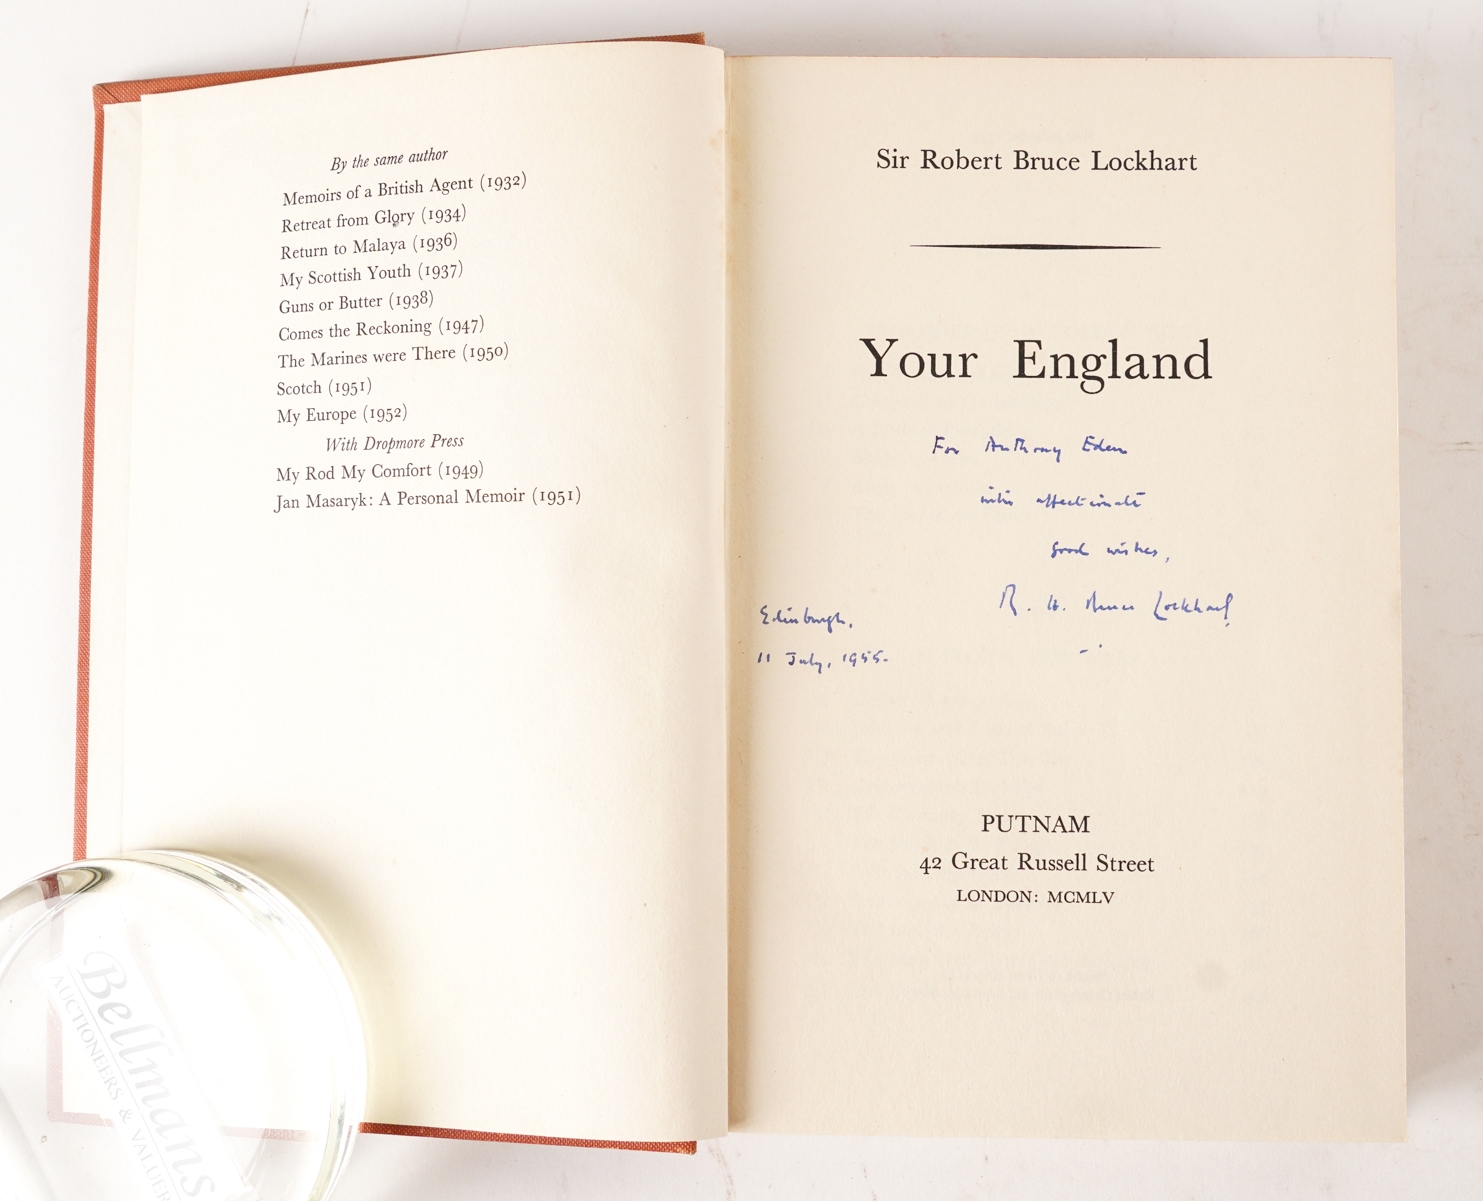 By the same author
Memoirs of a British Agent (1932)
Retreat from Glory (1934)
Return to Malaya (1936)
My Scottish Youth (1937)
Guns or Butter (1938)
Comes the Reckoning (1947)
The Marines were There (1950)
Scotch (1951)
My Europe (1952)
With Dropmore Press
My Rod My Comfort (1949)
Jan Masaryk: A Personal Memoir (1951)
Sir Robert Bruce Lockhart
Your England
For Anthony Eden
with affectionate
good wishes,
R. H. Bruce Lockhart,
Edinburgh,
11 July, 1955.
PUTNAM
42 Great Russell Street
LONDON: MCMLV
Bellmans
AUCTIONEERS & VALUER